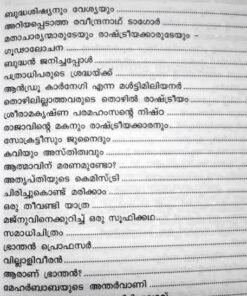 ബുദ്ധശിഷ്യനും വേശ്യയും
അറിയപ്പെടാത്ത രവീന്ദ്രനാഥ് ടാഗോർ
മതാചാര്യന്മാരുടേയും രാഷ്ട്രീയക്കാരുടേയും -
ഗൂഢാലോചന
ബുദ്ധൻ ജനിച്ചപ്പോൾ
പത്രാധിപരുടെ ശ്രദ്ധയ്ക്ക്
ആൻഡ്രൂ കാർനേഗി എന്ന മൾട്ടിമില്യനർ
തൊഴിലില്ലാത്തവരുടെ തൊഴിൽ രാഷ്ട്രീയം
ശ്രീരാമകൃഷ്ണ പരമഹംസന്റെ നിഷ്ഠ
രാജാവിന്റെ മകനും രാഷ്ട്രീയക്കാരനും
സോക്രട്ടീസും ജുനൈദും
കവിയും അസ്തിത്വവും
ആത്മാവിന് മരണമുണ്ടോ?
അതൃപ്തിയുടെ കെമിസ്ട്രി
ചിരിച്ചുകൊണ്ട് മരിക്കാം
ഒരു തീവണ്ടി യാത്ര
മജ്നുവിനെക്കുറിച്ച് ഒരു സൂഫിക്കഥ
സമാധിചിത്രം
ഭ്രാന്തൻ പ്രൊഫസർ
വില്ലാളിവീരൻ
ആരാണ് ഭ്രാന്തൻ?
മെഹർബാബയുടെ അന്തർവാണി